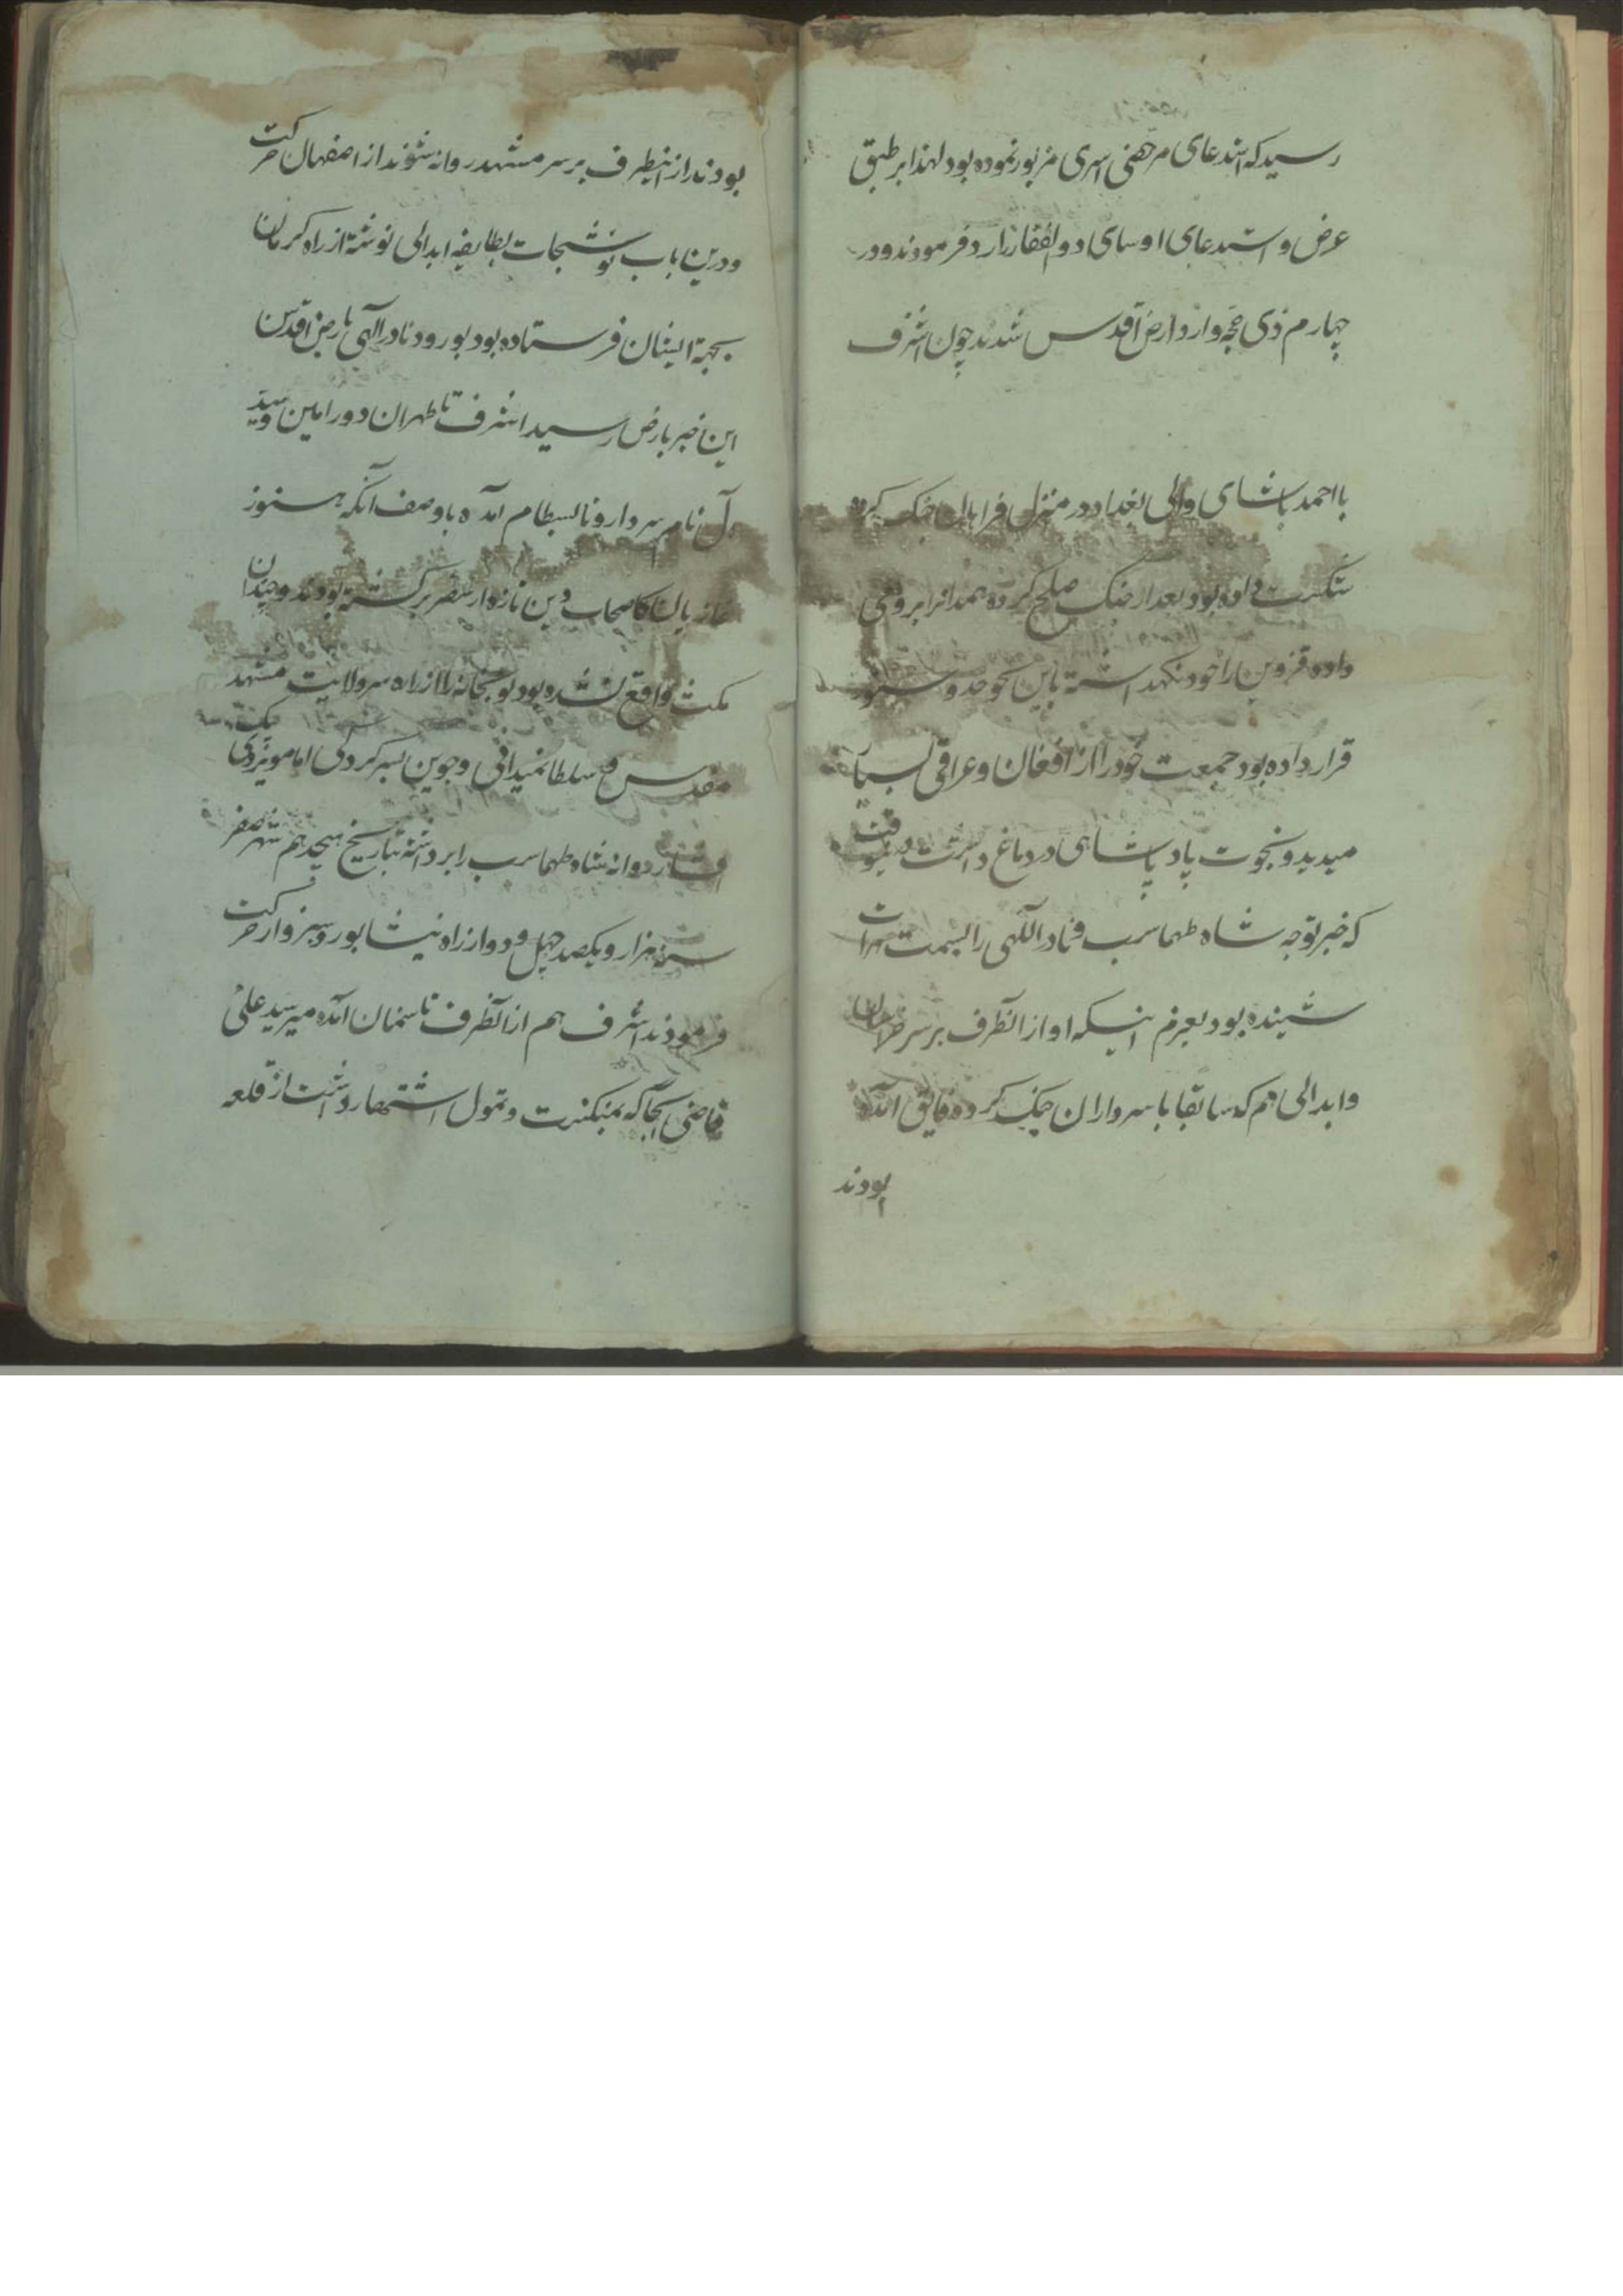 رسید که استدعای مرخصی اسری مزبور نموده بود لهذا بر طبق
عرض و استدعای او سای دوالفقار زارد فرمودند و در
چهارم ذی حجه وارد ارض اقدس شدند چون اشرف
با احمد پاشای والی بغداد در منزل فراهان جنک کرده
شکست داده بود بعد از جنک صلح کرده همدانرا برومی
داده قزوین را خود نکهداشته باین نحو حد و سنور
قرار داده بود جمعیت خود را از افغان و عراقی بسیار
میدید و نخوت پادشاهی در دماغ داشت درینوقت
که خبر توجه شاه طهماسب و نادر اللهی را بسمت هرات
شنیده بود بعزم اینکه او از انطرف بر سر خراسان
و ابدالی هم که سابقا با سرداران جنک کرده فایق آمده
بودند
بودند از اینطرف بر سر مشهد روانه شوند از اصفهان حرکت
و درین باب نوشتجات بطایفه ابدالی نوشته از راه کرمان
بجهة ایشان فرستاده بود بورود نادر الهی بارض اقدس
این خبر بارض رسید اشرف تا طهران و ورامین و سید
آل نام سردار او تا بسطام آمده با وصف آنکه هنوز
غازیان رکاب تازه از سفر برکشته بودند و چندان
مکث واقع نشده بود توپخانه را از راه سر ولایت مشهد
مقدس و سلطانمیدانی و جوین بسرکردکی امامویردی بیک
افشار روانه شاه طهماسب را برداشته بتاریخ هیجدهم شهر صفر
سنه هزار و یکصد چهل و دو از راه نیشابور و سبزوار حرکت
فرمودند اشرف هم از آنطرف تا سمنان آمده میر سید علی
قاضی آنجا که بمکنت و تمول اشتهار داشت از قلعه